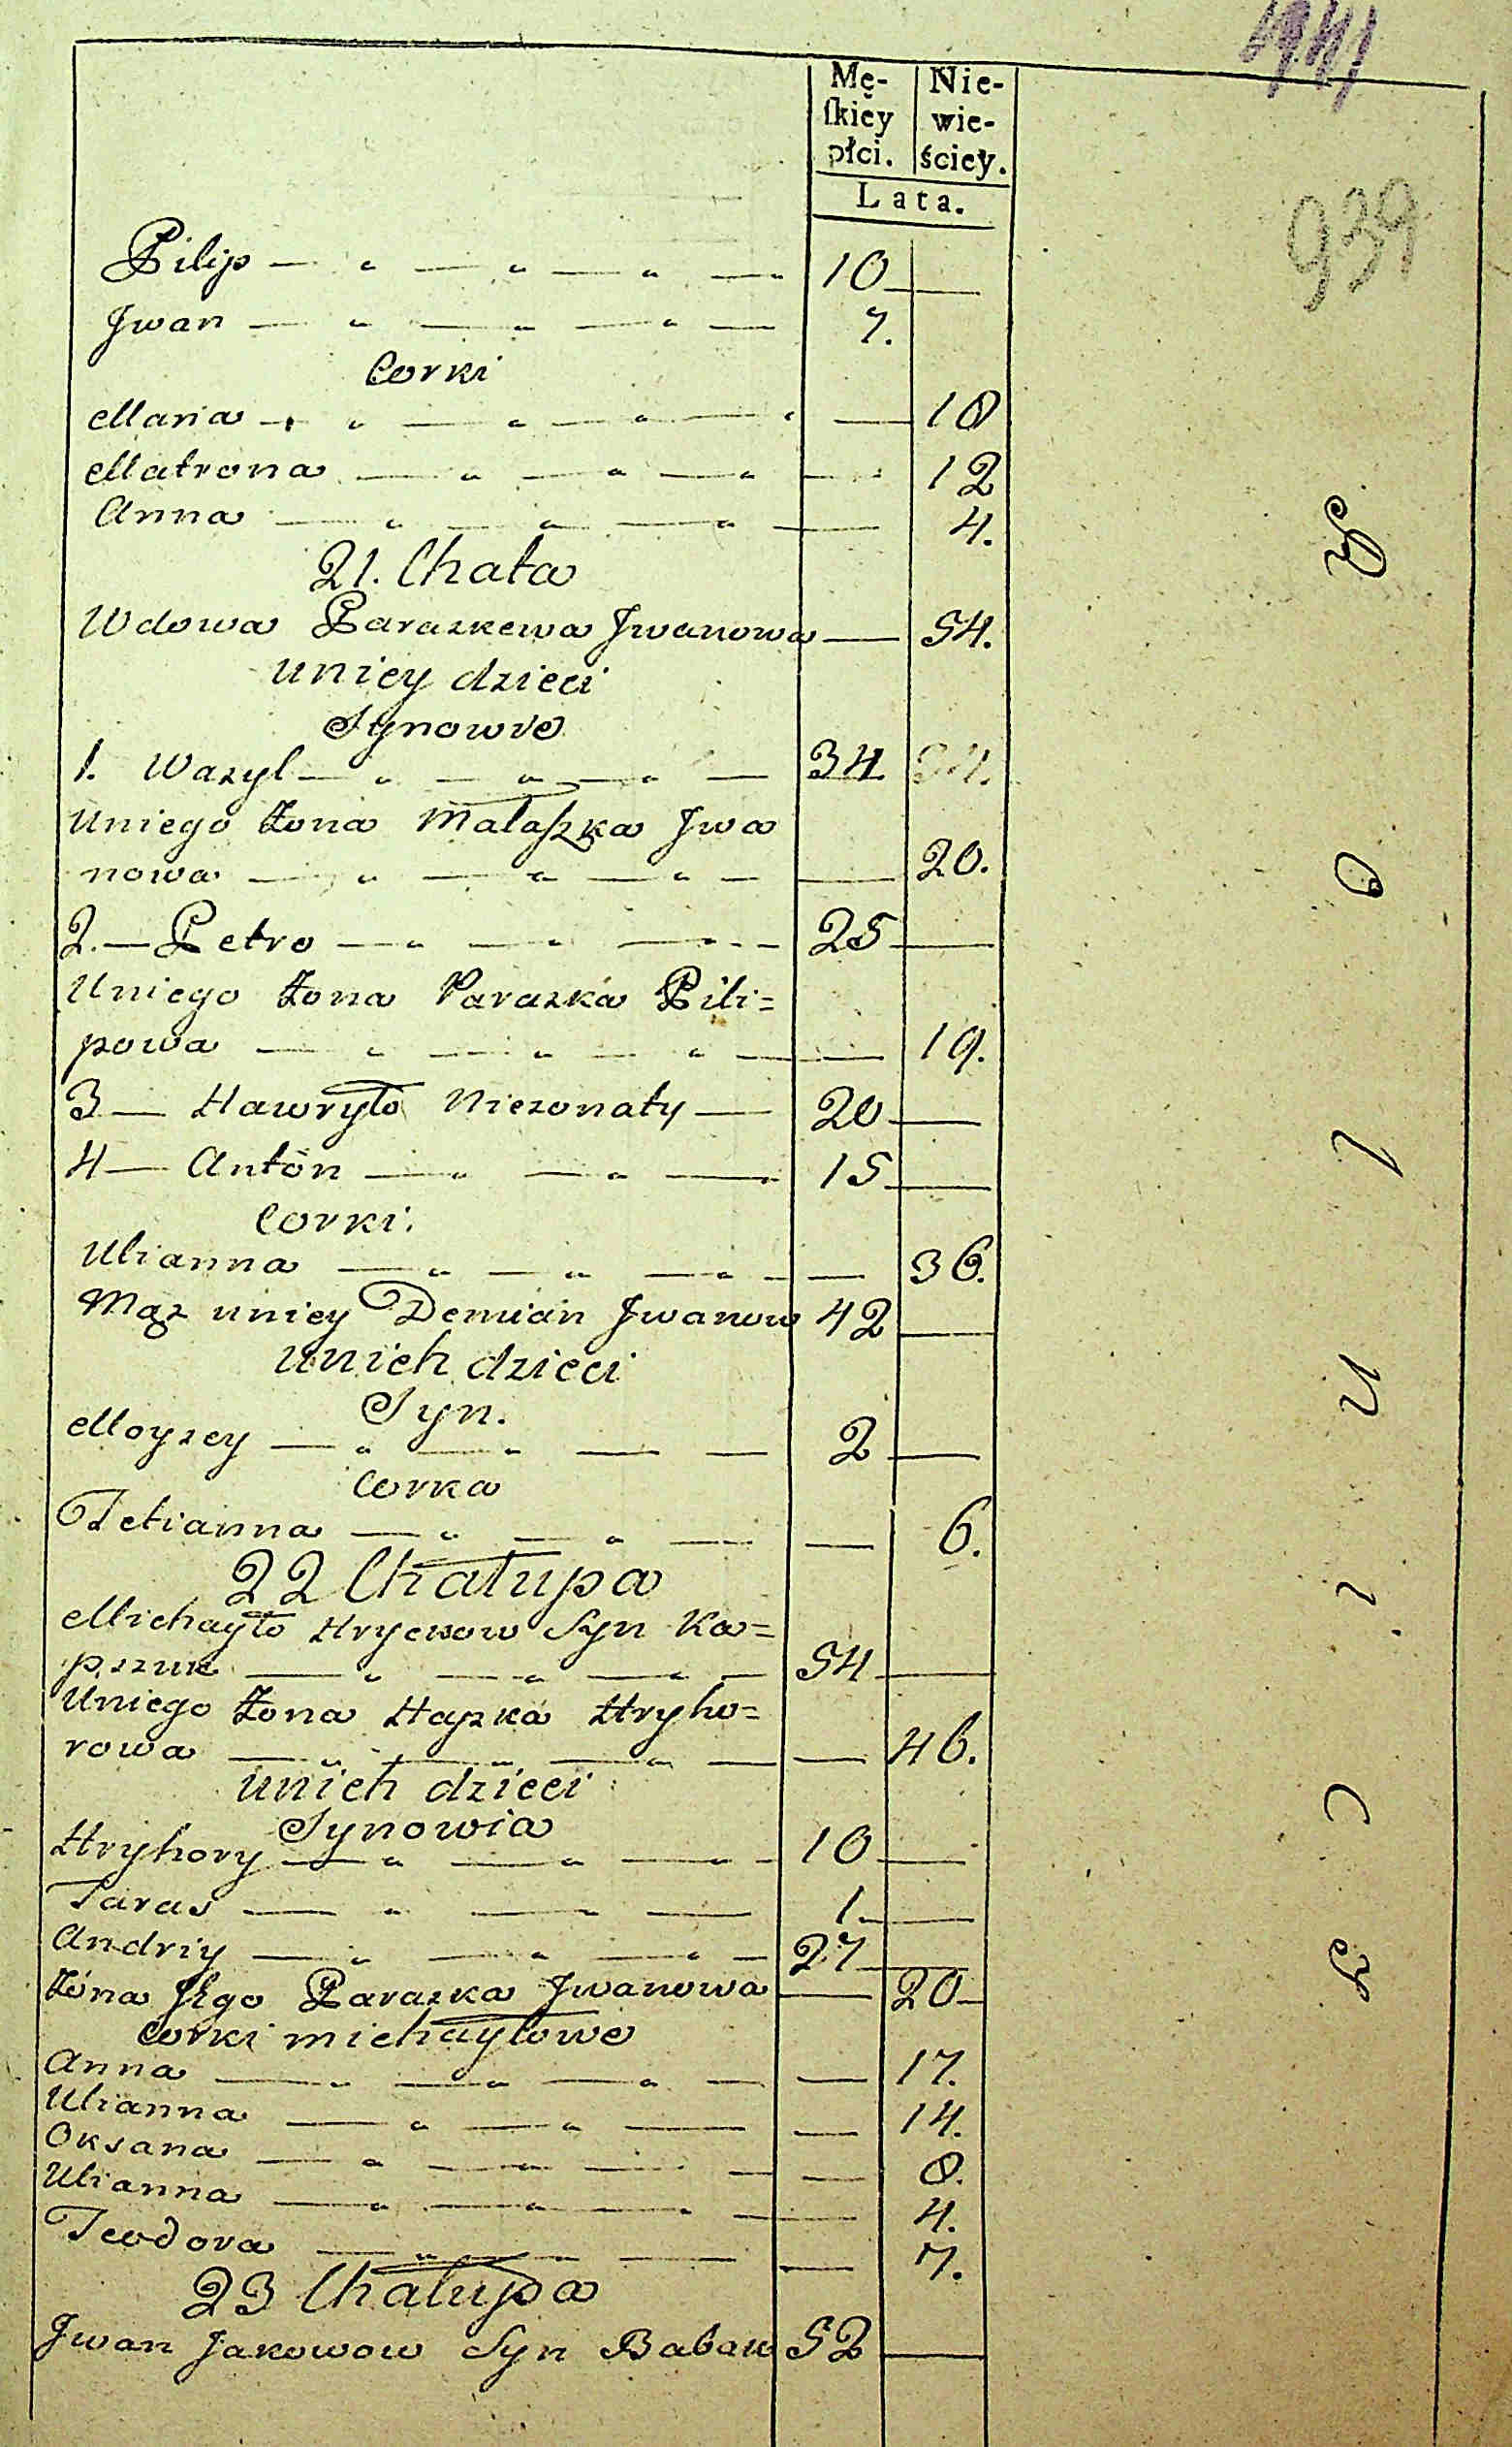 1941
939
Mę- Nie-
ſkiey wie-
płci. ściey.
Lata.
Pilip 10
Jwan 7.
Corki
Maria 18
Matrona 12
Anna 4.
21. Chata
Wdowa Paraskewa Jwanowa 54.
uniey dzieci
Synowie
1. Wazyl 34. 34.
Uniego Żona Małaszka Jwa
nowa 20.
2. Petro 25
Uniego Żona Paraska Pili=
powa 19.
3 Hawryło Niezonaty 20
4 Anton 15
Corki.
Ulianna 36.
Mąz uniey Demian Jwanow 42
unich dzieci
Syn.
Moyzey 2
Corka
Tetianna 6.
22 Chałupa
Michayło Hryckow Syn Ka=
pszuk 54
Uniego Żona Hapka Hryho=
rowa 46.
unich dzieci
Synowia
Hryhory 10
Taras 1.
Andriy 27
Żona Jego Paraska Jwanowa 20
Corki michayłowe
Anna 17.
Ulianna 14.
Oksana 8.
Ulianna 4.
Teodora 7.
23 Chałupa
Jwan Jakowow Syn Babak 52